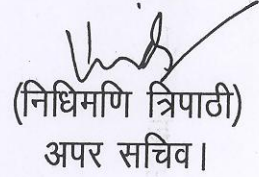 (निधिमणि त्रिपाठी)
अपर सचिव।